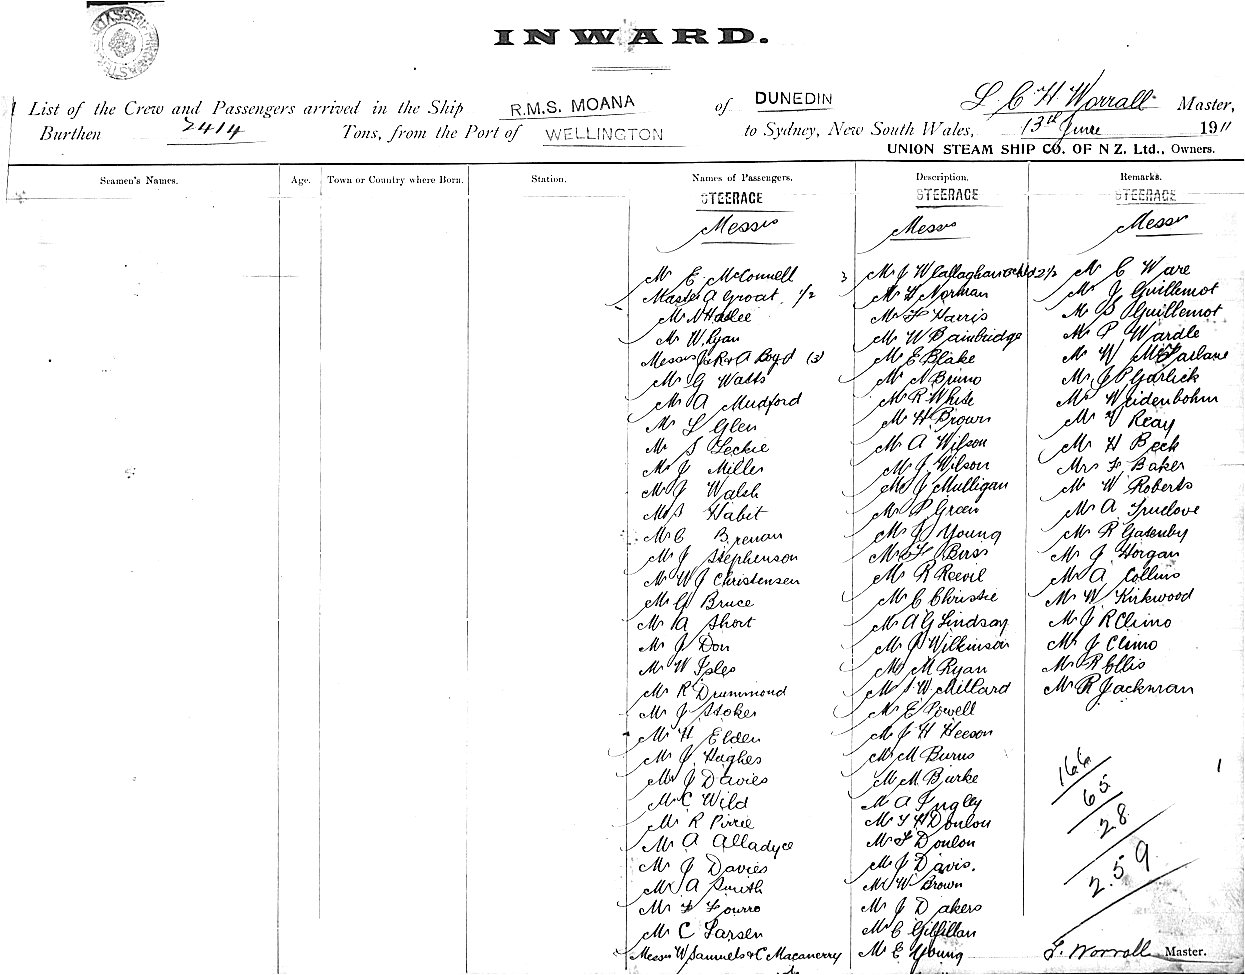 INWARD.
List of the Crew and Passengers arrived in the Ship R.M.S. MOANA of DUNEDIN L C H Worrall Master,
Burthen 2414 Tons, from the Port of WELLINGTON to Sydney, New South Wales, 13th June 1911
UNION STEAM SHIP CO. OF N Z. Ltd., Owners.
Seamen's Names. Age. Town or Country where Born. Station. Names of Passengers. Description. Remarks.
STEERAGE STEERAGE STEERAGE
Messrs Messrs Messrs
Mr E. McConnell
Master A Groat 1/2
Mr N Haslee
Mr W. Ryan
Messrs J & R & A Boyd (3)
Mr G Watts
Mr A Mudford
Mr L Glen
Mr S Leckie
Mr J Miller
Mr J Walsh
Mr S Habit
Mr C Brenan
Mr J Stephenson
Mr W J Christensen
Mr G Bruce
Mr A Short
Mr J Don
Mr W Isles
Mr R Drummond
Mr J Stokes
Mr H Elden
Mr J Hughes
Mr J Davies
Mr C Wild
Mr R Pirrie
Mr A Alladyce
Mr J Davies
Mr A Smith
Mr F Fourro
Mr C Larsen
Messrs W Samuels & C Macanerry
3 Mr J W Callaghan & child 2 1/2
Mr W Norman
Mr F Harris
Mr W Bainbridge
Mr E Blake
Mr N Bruno
Mr R White
Mr H Brown
Mr A Wilson
Mr J Wilson
Mr J Mulligan
Mr P Green
Mr J Young
Mr F Birss
Mr R Reevil
Mr C Christie
Mr A G Lindsay
Mr J Wilkinson
Mr M Ryan
Mr S W Millard
Mr E Powell
Mr J H Heeson
Mr M Burns
Mr M Burke
Mr A Ingley
Mr T H Donlon
Mr F Donlon
Mr J Davis.
Mr W Brown
Mr J Dakers
Mr C Gilfillan
Mr E Young
Mr C Ware
Mr J Guillemot
Mr S Guillemot
Mr P Wardle
Mr W McFarlane
Mr J P Garlick
Mr Weidenbohm
Mr V Reay
Mr H Beck
Mrs F Baker
Mr W Roberts
Mr A Truelove
Mr R Gatenby
Mr J Horgan
Mr A Collins
Mr W Kirkwood
Mr J R Climo
Mr J Climo
Mr R Ellis
Mr R Jackman
166
65
28
259
F. Worrall Master.